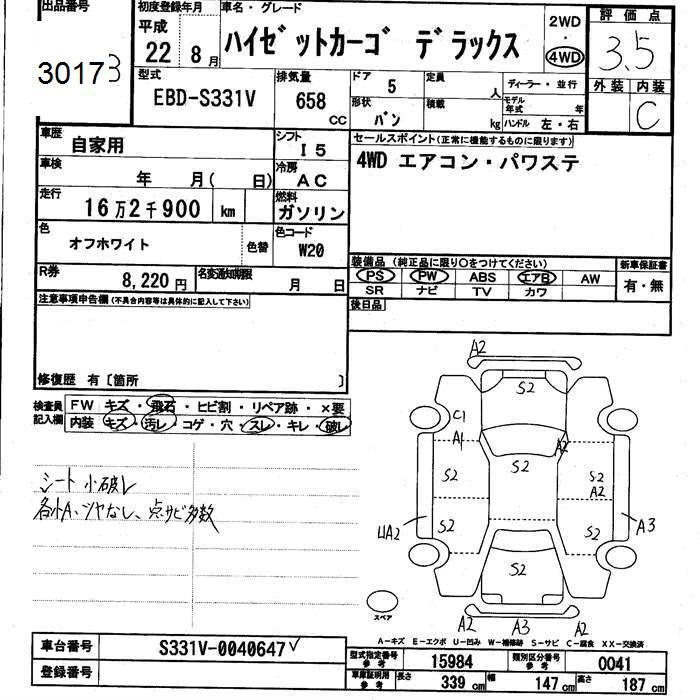 出品番号 初度登録年月 車名・グレード 評価点
30173 平成 22 8月 ハイゼットカーゴ デラックス 2WD・4WD 3.5
型式 排気量 ドア 5 定員 人 ディーラー・並行 外装 内装
EBD-S331V 658 CC 形状 バン 積載 kg モデル年式 年 ハンドル 左・右 C
車歴 自家用 シフト I5 セールスポイント(正常に機能するものに限ります)
車検 年 月( 日) 冷房 AC 4WD エアコン・パワステ
走行 16万2千900 km 燃料 ガソリン
色 オフホワイト 色替 色コード W20
装備品 (純正品に限り○をつけてください) 新車保証書
R券 8,220円 名変通知期限 月 日 PS PW ABS エアB AW 有・無
SR ナビ TV カワ
注意事項申告欄(不具合内容等は具体的に記入して下さい) 後日品
修復歴 有〔箇所 〕
検査員記入欄 FW キズ・飛石・ヒビ割・リペア跡・×要
内装 キズ・汚レ・コゲ・穴・スレ・キレ・破レ
シート小破レ
各小A、ツヤなし、点サビ多数
A2
S2
C1
A1 A2
S2 S2 S2
A2
UA2 S2 S2 A3
S2
スペア
A2 A3 A2
A-キズ E-エクボ U-凹み W-補修跡 S-サビ C-腐食 XX-交換済
車台番号 S331V-0040647
型式指定番号 参考 15984 類別区分番号 参考 0041
登録番号
車庫証明用 参考 長さ 339 cm 幅 147 cm 高さ 187 cm